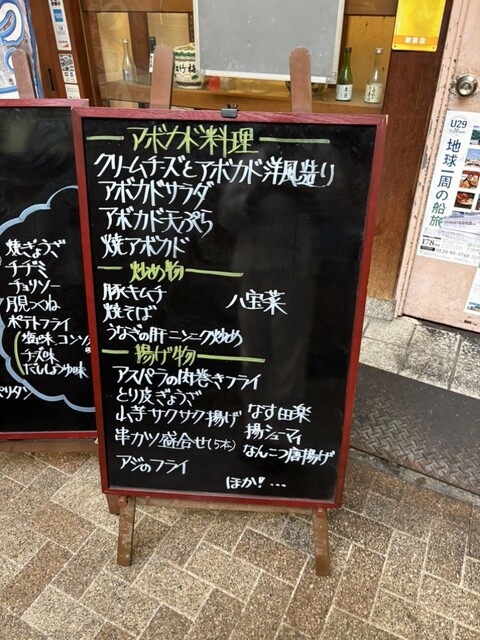 アボカド料理
クリームチーズとアボカド洋風造り
アボカドサラダ
アボカド天ぷら
焼アボカド
炒め物
豚キムチ
八宝菜
焼そば
うなぎの肝ニンニク炒め
揚げ物
アスパラの肉巻きフライ
とり皮ぎょうざ
山芋サクサク揚げ
なす田楽
揚シューマイ
串カツ盛合せ(5本)
なんこつ唐揚げ
アジのフライ
ほか!...
焼ぎょうざ
チヂミ
チョリソー
月見つくね
ポテトフライ
塩味 コンソメ
チーズ味
だししょうゆ味
U29
地球一周の船旅
178